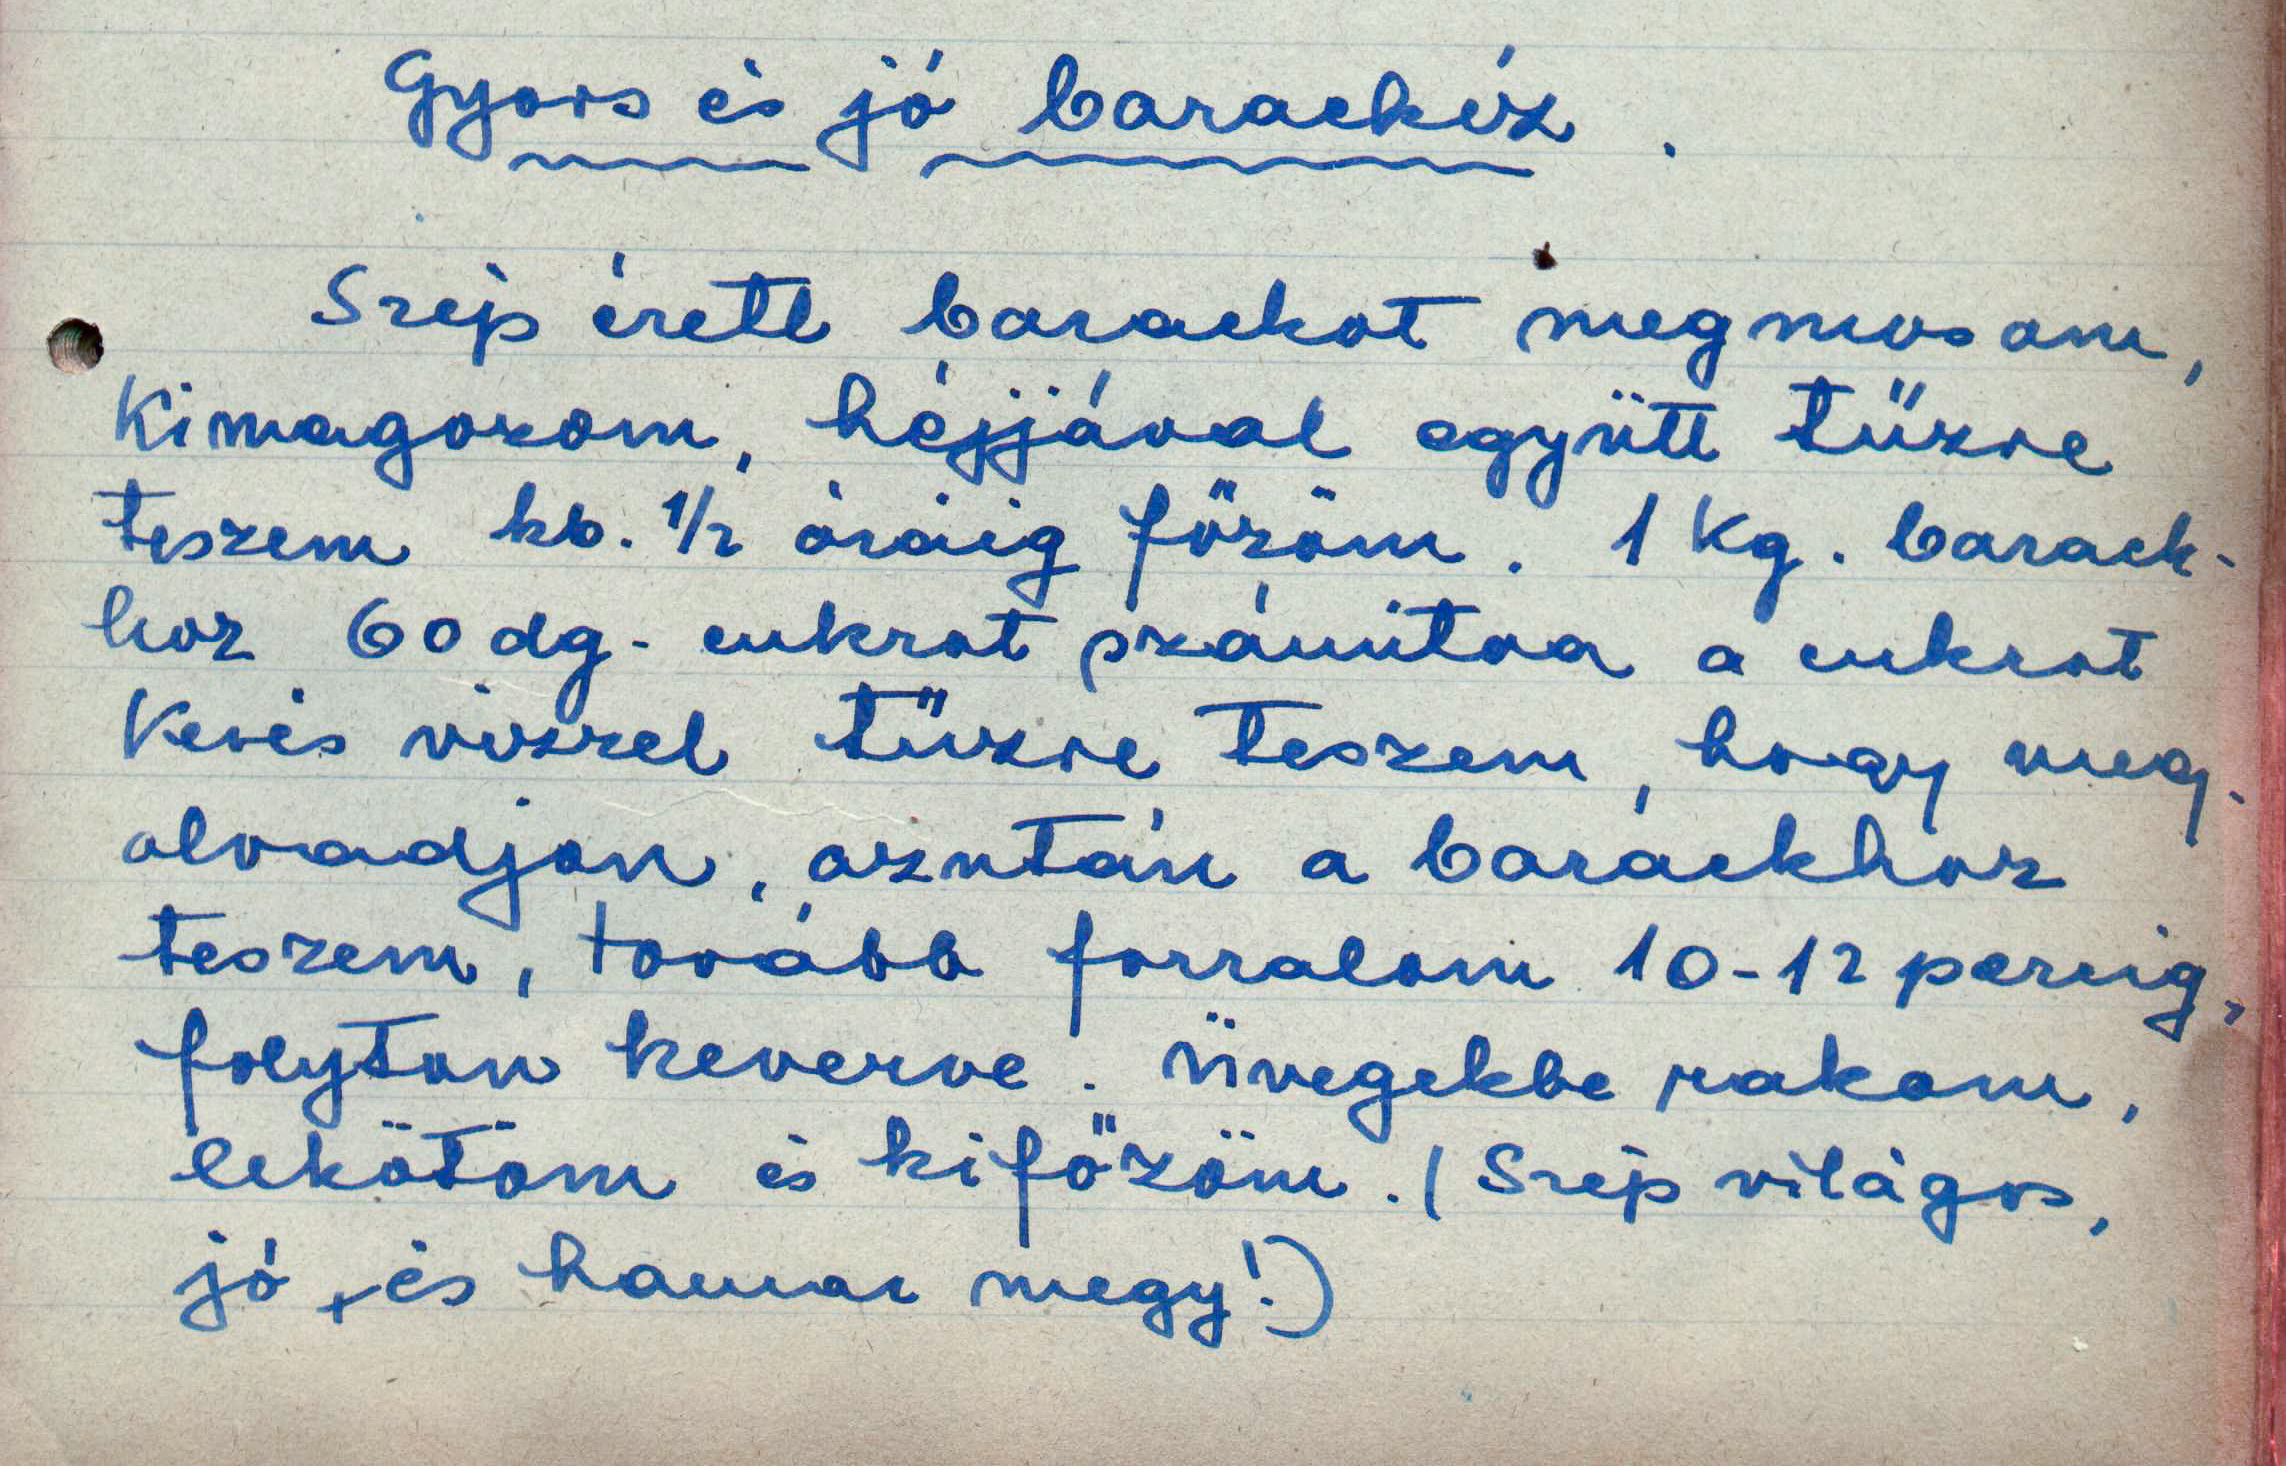 Gyors és jó barackíz.
Szép érett barackot megmosom,
Kimagozom, héjjával együtt tűzre
teszem kb. 1/2 óráig főzöm. 1 Kg. barack-
hoz 60 dg. cukrot számitva a cukrot
Kevés vizzel tűzre teszem, hogy meg-
olvadjon, azután a barackhoz
teszem, tovább forralom 10-12 percig,
folyton keverve. üvegekbe rakom,
lekötöm és kifőzöm. (Szép világos,
jó, és hamar megy!)